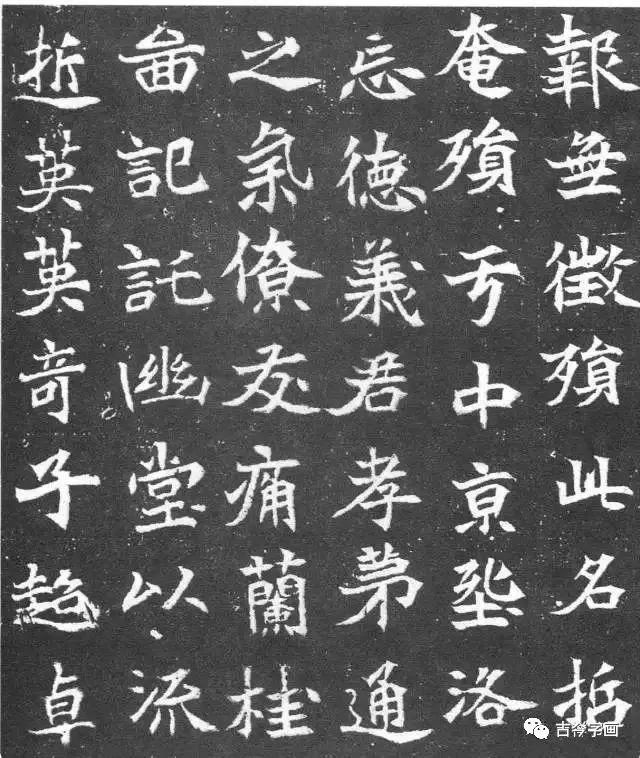 報無徵殞此名哲
奄殞亏中京洛
忘德義君孝弟通
之氣僚友痛蘭桂
啚記託幽堂以流
逝英英奇子超卓
古今字画